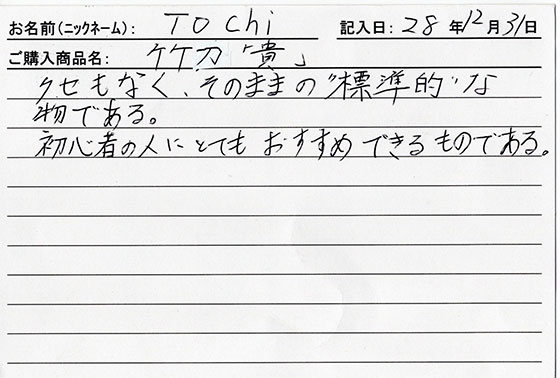 お名前(ニックネーム): Tochi 記入日: 28 年 12 月 31 日
ご購入商品名: 竹刀「貴」
クセもなく、そのままの"標準的"な
物である。
初心者の人にとてもおすすめできるものである。